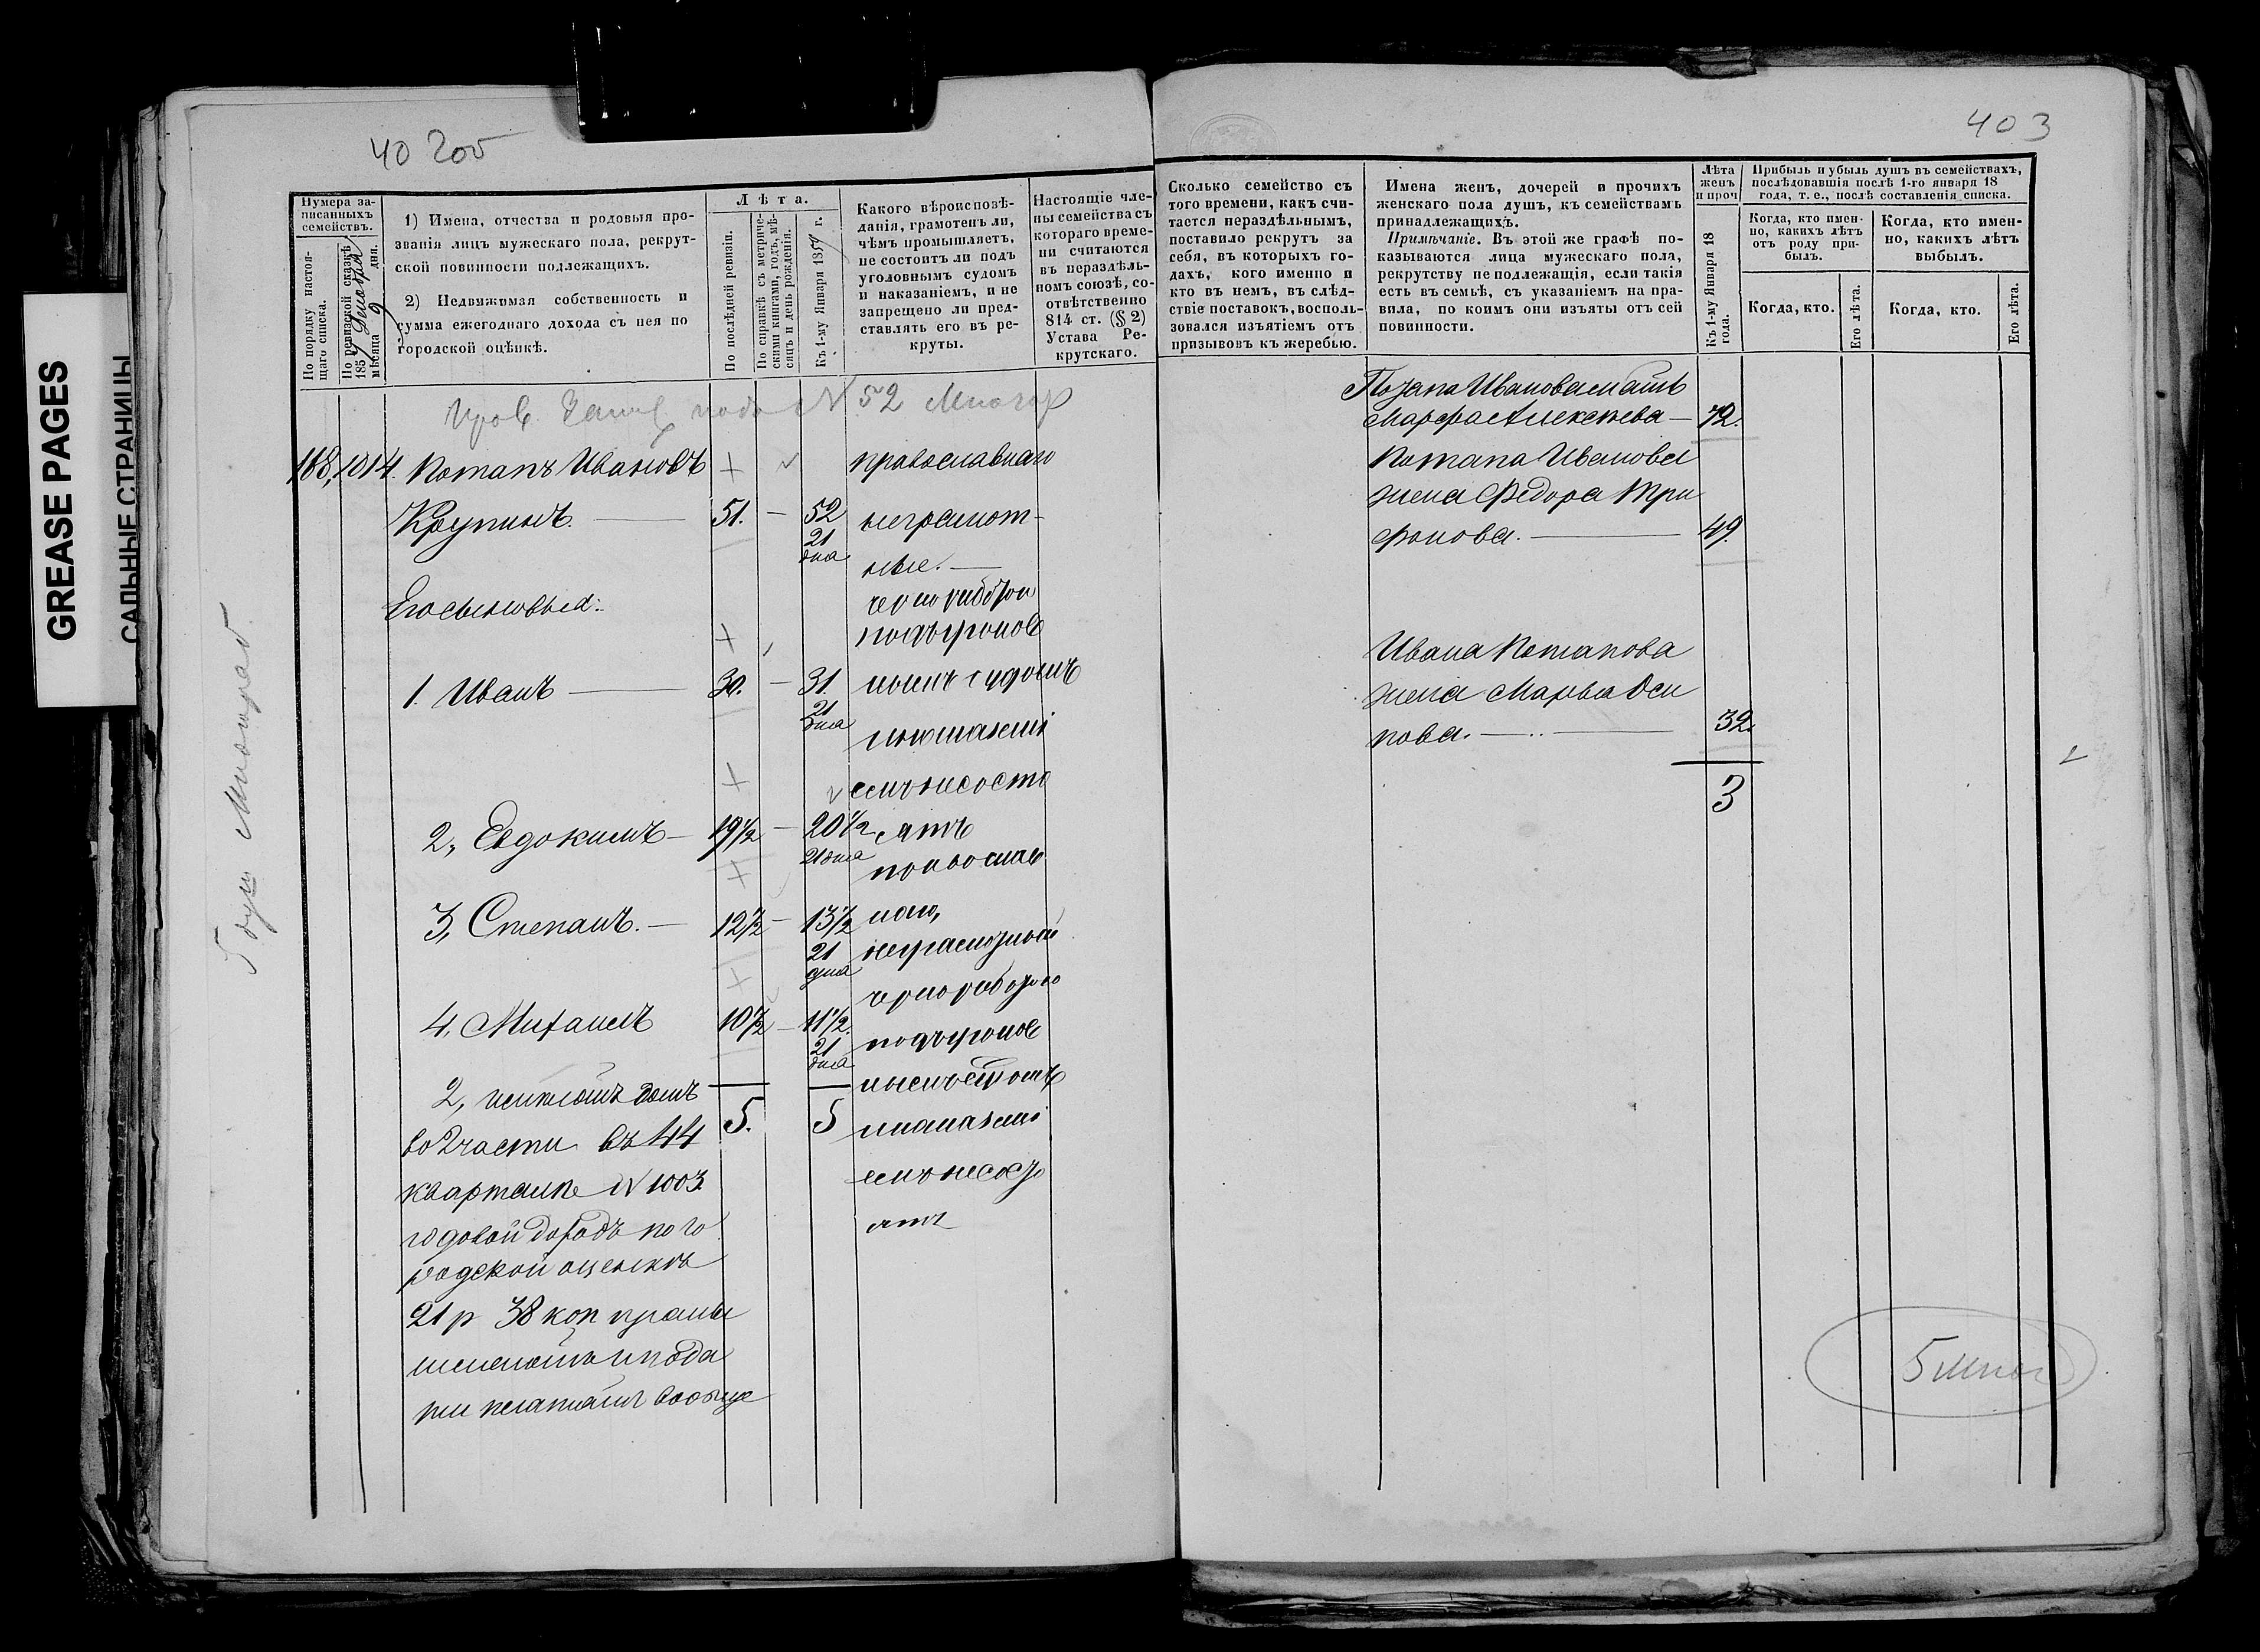 GREASE PAGES
САЛЬНЫЕ СТРАНИЦЫ
40 2об
Нумера за-
писанныхъ
семействъ.
По порядку настоя-
щаго списка.
По ревизской сказкѣ
185 Декабря
мѣсяца 9 дня.
1) Имена, отчества и родовыя про-
званія лицъ мужескаго пола, рекрут-
ской повинности подлежащихъ.
2) Недвижимая собственность и
сумма ежегоднаго дохода съ нея по
городской оцѣнкѣ.
Лѣта.
По послѣдней ревизіи.
По справкѣ съ метриче-
скими книгами, годъ, мѣ-
сяцъ и день рожденія.
Къ 1-му Января 185 г.
Какого вѣроисповѣ-
данія, грамотенъ ли,
чѣмъ промышляетъ,
не состоитъ ли подъ
уголовнымъ судомъ
и наказаніемъ, и не
запрещено ли пред-
ставлять его въ ре-
круты.
Настоящіе чле-
ны семейства съ
котораго време-
ни считаются
въ нераздѣль-
номъ союзѣ, со-
отвѣтственно
814 ст. (§ 2)
Устава Ре-
крутскаго.
N 52
188, 1014. Потапъ Ивановъ + православнаго
Крупинъ. — 51. — 52 неграмот-
21
дня
ные. —
Его сыновья:
чернорабоч
подъ уголов
1. Иванъ — 30. — 31. нымъ судомъ
21
дня
и наказані
емъ не состо
2, Евдокимъ — 19½ — 20½ ятъ
21 дня
православ
3, Степанъ. — 12½ — 13½ наго,
21
дня
неграмотный
4, Михаилъ 10½ — 11½.
21
дня
подъ уголов
2, домъ
5. 5
во 2 части въ 44
и наказані
кварталѣ N 1003.
емъ не состо
годовой доходъ по го
ятъ
родской оценкѣ
21 р 38 коп
403
Сколько семейство съ
того времени, какъ счи-
тается нераздѣльнымъ,
поставило рекрутъ за
себя, въ которыхъ го-
дахъ, кого именно и
кто въ немъ, въ слѣд-
ствіе поставокъ, восполь-
зовался изъятіемъ отъ
призывовъ къ жеребью.
Имена женъ, дочерей и прочихъ
женскаго пола душъ, къ семействамъ
принадлежащихъ.
Примѣчаніе. Въ этой же графѣ по-
казываются лица мужескаго пола,
рекрутству не подлежащія, если такія
есть въ семьѣ, съ указаніемъ на пра-
вила, по коимъ они изъяты отъ сей
повинности.
Лѣта
женъ
и проч
Къ 1-му Января 18
года.
Прибыль и убыль душъ въ семействахъ,
послѣдовавшія послѣ 1-го января 18
года, т. е., послѣ составленія списка.
Когда, кто имен-
но, какихъ лѣтъ
отъ роду при-
былъ.
Когда, кто имен-
но, какихъ лѣтъ
выбылъ.
Когда, кто.
Его лѣта.
Когда, кто.
Его лѣта.
Потапа Иванова мать
Марфа Алексѣева — 72.
Потапа Иванова
жена Федора Три
фонова. — 49.
Ивана Потапова
жена Марья Оси
пова. — 32.
3